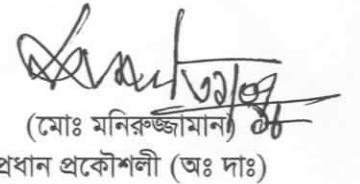 (মোঃ মনিরুজ্জামান)
প্রধান প্রকৌশলী (অঃ দাঃ)